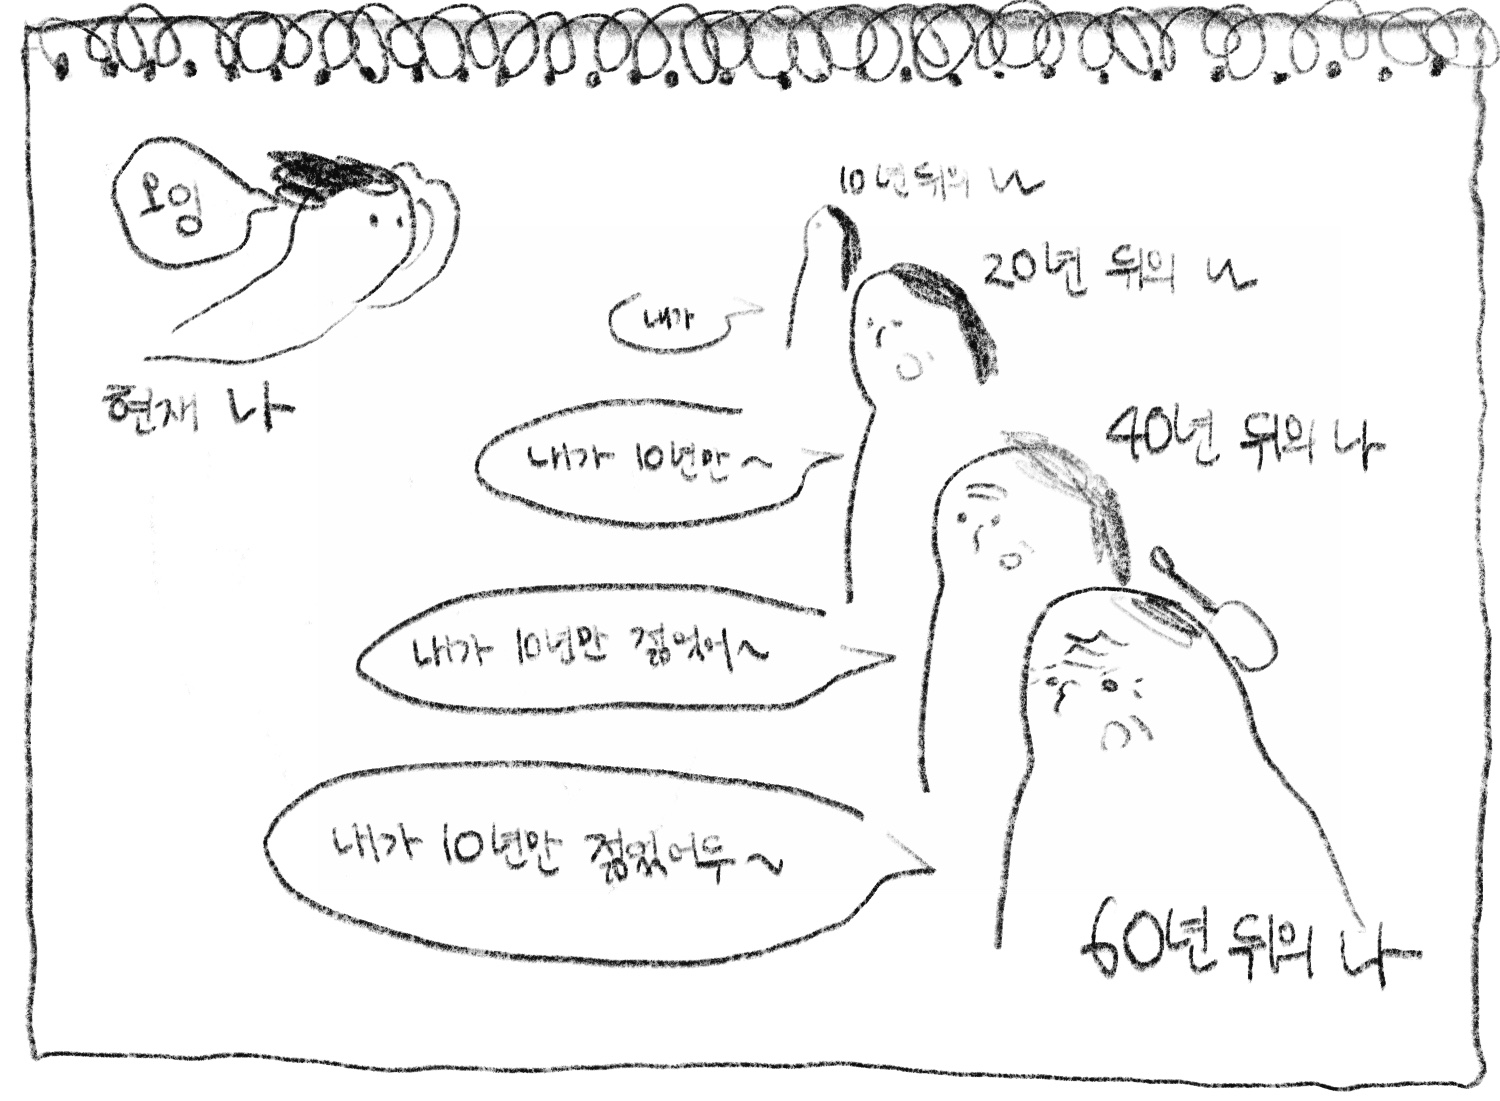 오잉
현재 나
10년 뒤의 나
20년 뒤의 나
내가
내가 10년만~
40년 뒤의 나
내가 10년만 젊었어~
내가 10년만 젊었어두~
60년 뒤의 나